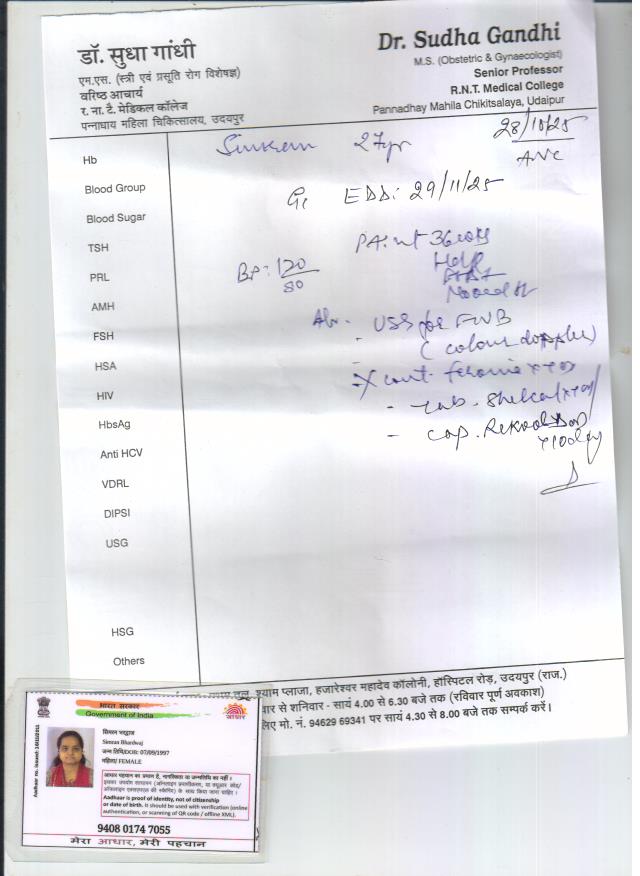 डॉ. सुधा गांधी
एम.एस. (स्त्री एवं प्रसूति रोग विशेषज्ञ)
वरिष्ठ आचार्य
र. ना. टै. मेडिकल कॉलेज
पन्नाधाय महिला चिकित्सालय, उदयपुर
Dr. Sudha Gandhi
M.S. (Obstetric & Gynaecologist)
Senior Professor
R.N.T. Medical College
Pannadhay Mahila Chikitsalaya, Udaipur
28/10/25
ANC
Simran 27yr
Hb
Blood Group
Blood Sugar
TSH
PRL
AMH
FSH
HSA
HIV
HbsAg
Anti HCV
VDRL
DIPSI
USG
HSG
Others
EDD: 29/11/25
BP: 120/80
USG for FWB
(colour doppler)
- Tab. Shelcal
- Cap.
श्याम प्लाजा, हजारेश्वर महादेव कॉलोनी, हॉस्पिटल रोड़, उदयपुर (राज.)
वार से शनिवार - सायं 4.00 से 6.30 बजे तक (रविवार पूर्ण अवकाश)
लिए मो. नं. 94629 69341 पर सायं 4.30 से 8.00 बजे तक सम्पर्क करें।
भारत सरकार
Government of India
आधार
सिमरन भारद्वाज
Simran Bhardwaj
जन्म तिथि/DOB: 07/09/1997
महिला/ FEMALE
आधार पहचान का प्रमाण है, नागरिकता या जन्मतिथि का नहीं।
Aadhaar is proof of identity, not of citizenship
or date of birth. It should be used with verification (online
authentication, or scanning of QR code / offline XML).
9408 0174 7055
मेरा आधार, मेरी पहचान